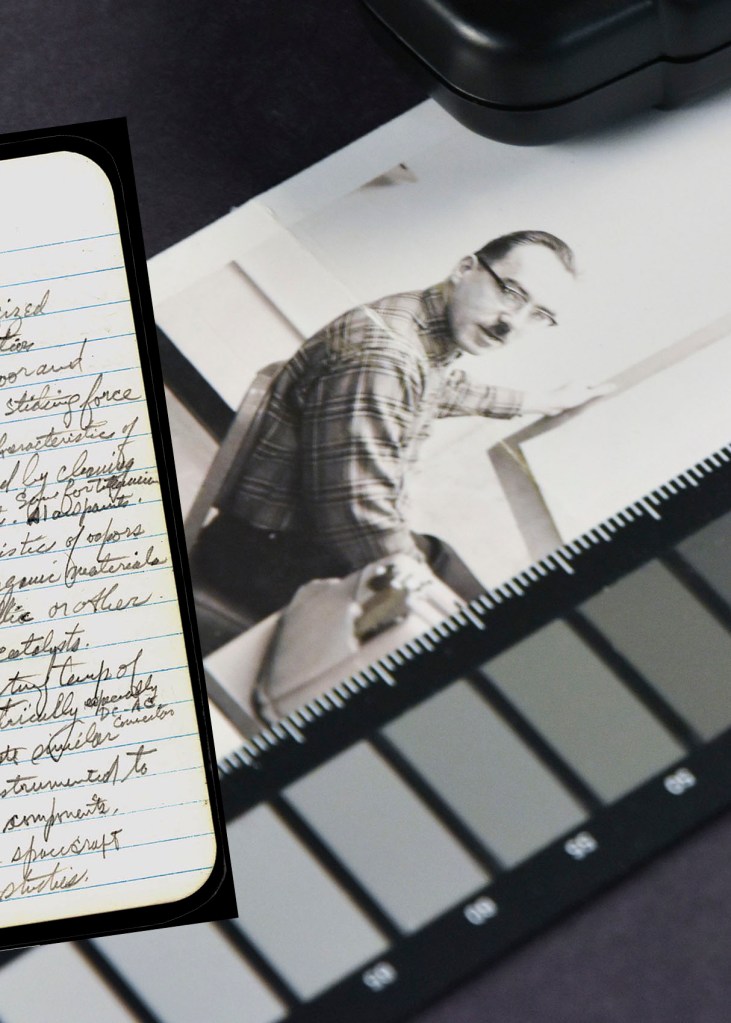 ized
door and
sliding force
characteristic of
d by cleaning
Some for
Al as paints.
istic of vapors
ganic materials
llic or other
catalysts.
ting temp of
trically especially
DC-AC
Converter
ate similar
strumented to
components,
spacecraft
studies.
50
55
60
65